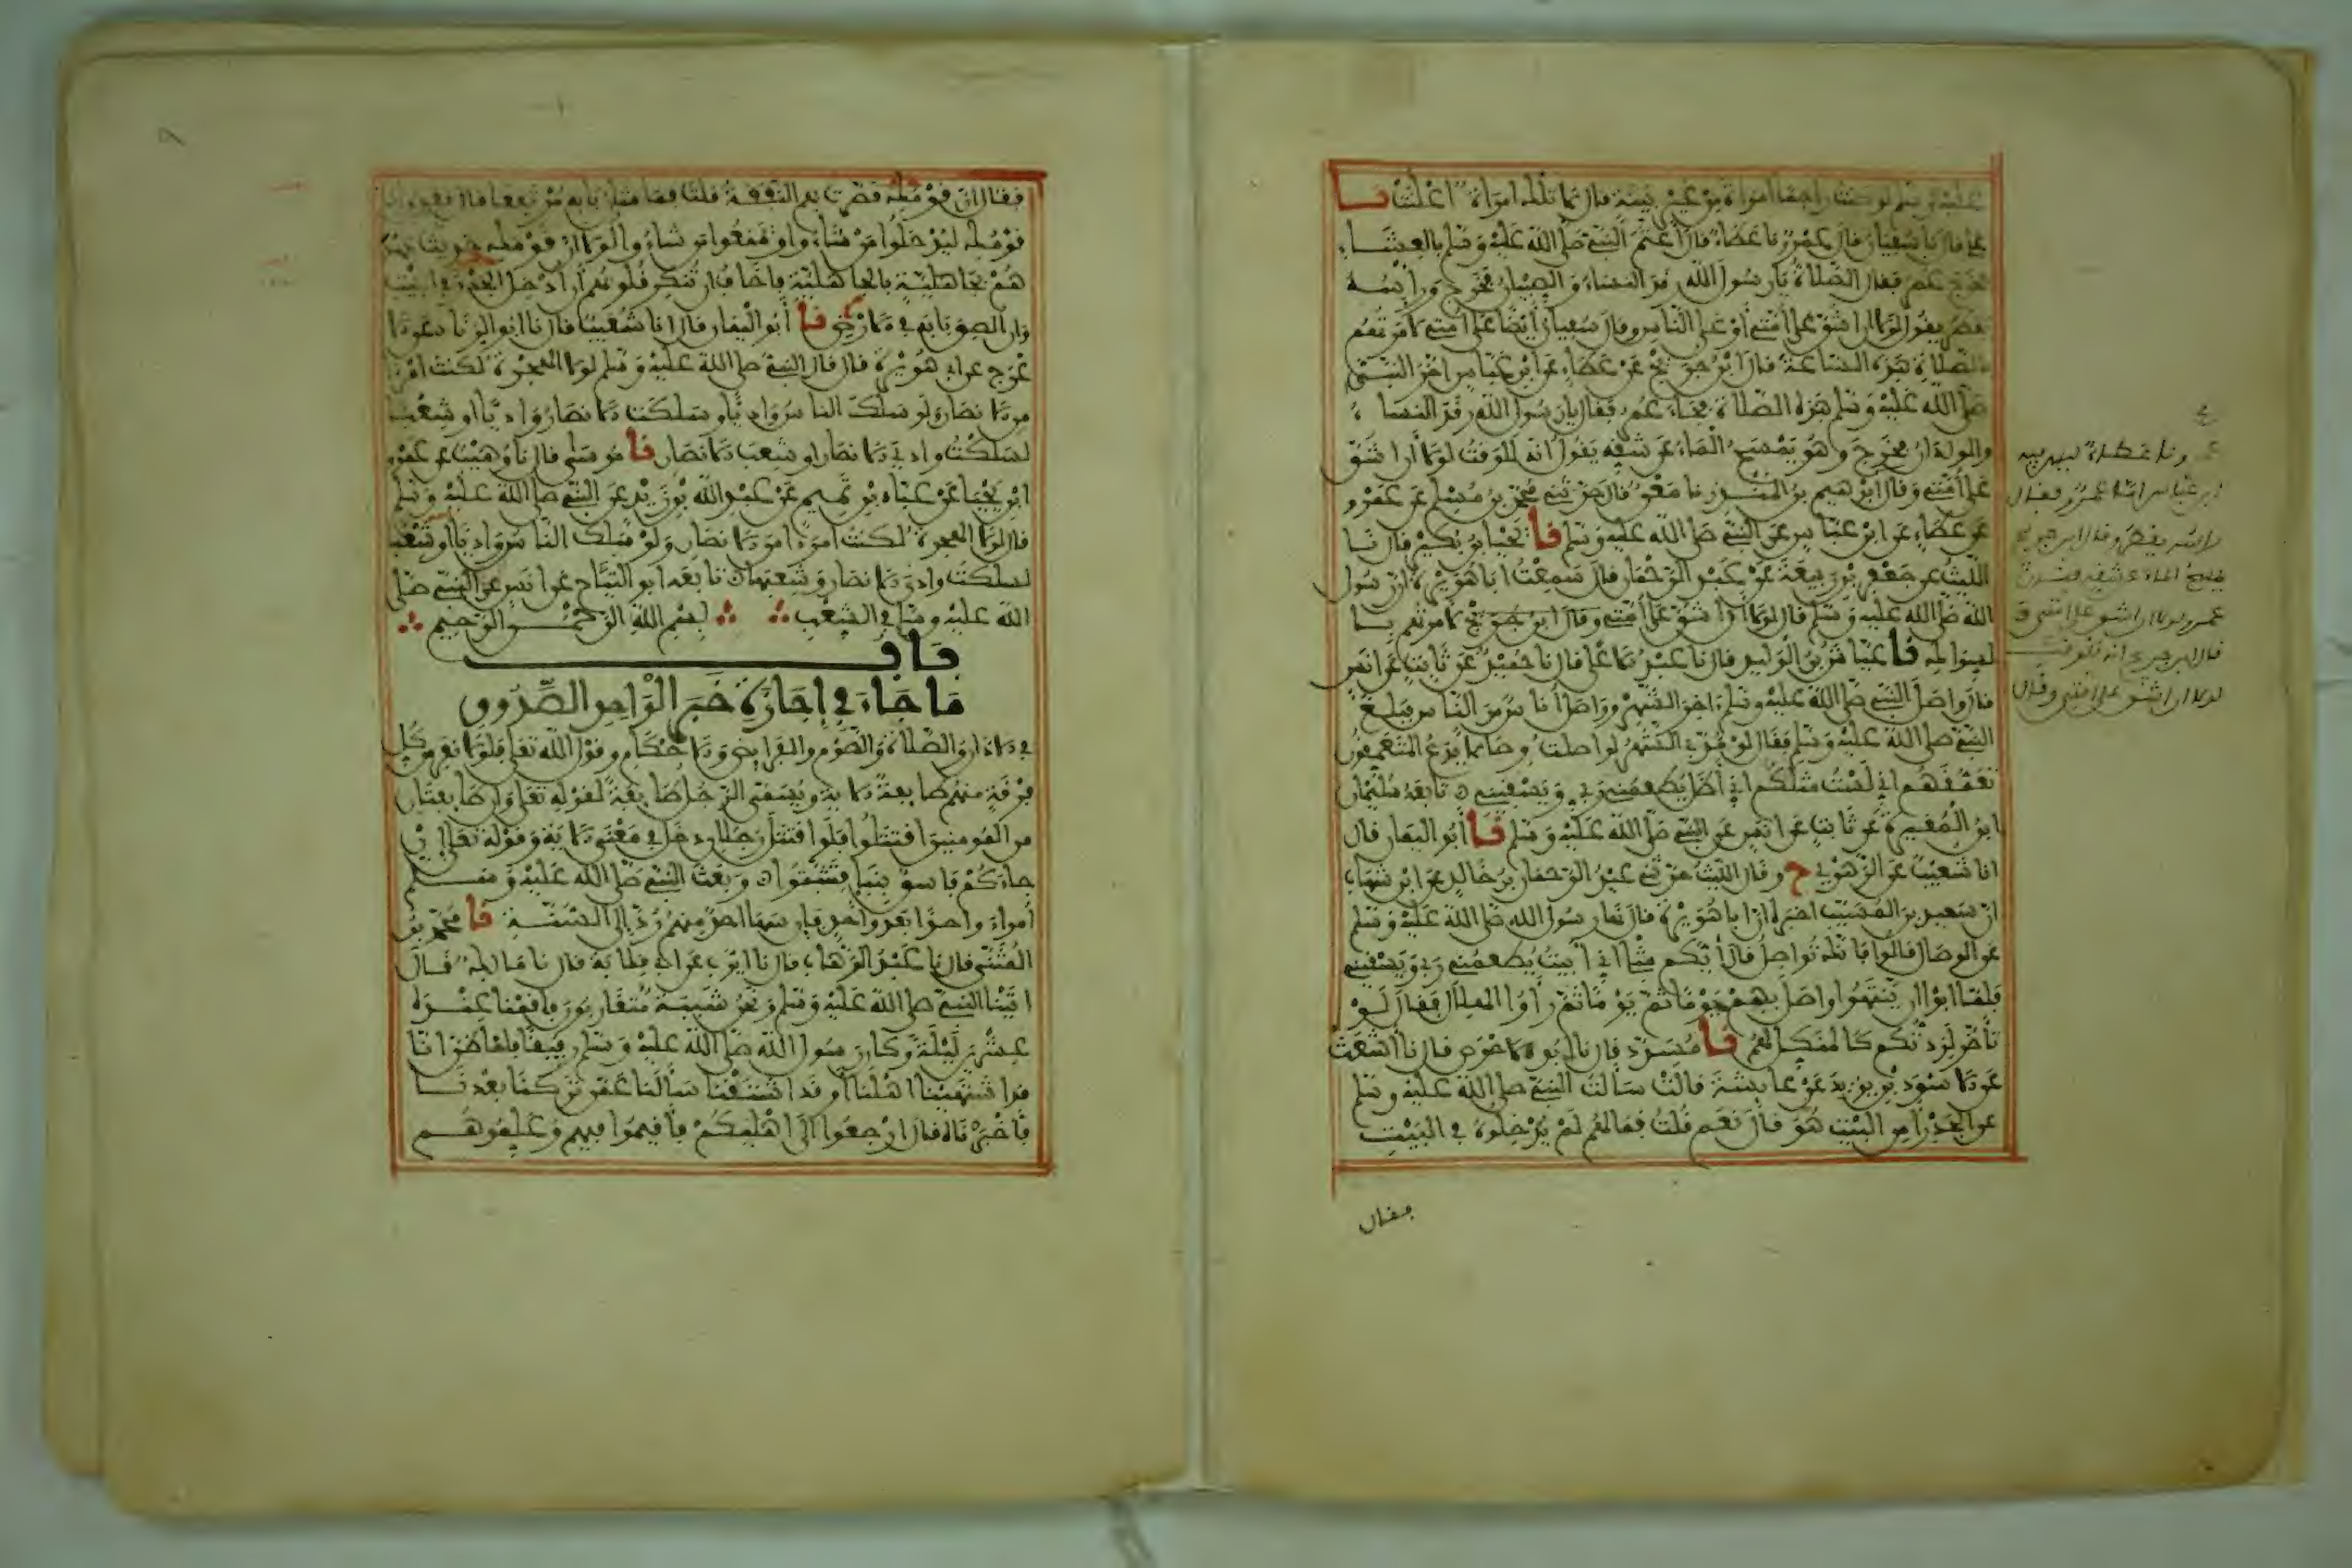 عليه وسلم لو كنت راجما امراة من غير بينة قال لا تلك امراة اعلنت نا
علي قال نا سفيان قال عمرو نا عطاء قال اعتم النبي صلى الله عليه وسلم بالعشاء
فخرج عمر فقال الصلاة يا رسول الله رقد النساء والصبيان فخرج وراسه
يقطر يقول لولا ان اشق على امتي او على الناس وقال سفيان ايضا على امتي لامرتهم
بالصلاة هذه الساعة قال ابن جريج عن عطاء عن ابن عباس اخر النبي
صلى الله عليه وسلم هذه الصلاة فجاء عمر فقال يا رسول الله رقد النساء
والولدان فخرج وهو يمسح الماء عن شقه يقول انه للوقت لولا ان اشق
على امتي وقال ابراهيم بن المنذر نا معن قال حدثني محمد بن مسلم عن عمرو
عن عطاء عن ابن عباس عن النبي صلى الله عليه وسلم نا يحيى بن بكير قال نا
الليث عن جعفر بن ربيعة عن عبد الرحمان قال سمعت ابا هريرة ان رسول
الله صلى الله عليه وسلم قال لولا ان اشق على امتي وقال ابن جريج لامرتهم با
لسواك نا عياش بن الوليد قال نا عبد الاعلى قال نا حميد عن ثابت عن انس
قال واصل النبي صلى الله عليه وسلم اخر الشهر وواصل اناس من الناس فبلغ
النبي صلى الله عليه وسلم فقال لو مد بي الشهر لواصلت وصالا يدع المتعمقون
تعمقهم اني لست مثلكم اني اظل يطعمني ربي ويسقيني تابعه سليمان
ابن المغيرة عن ثابت عن انس عن النبي صلى الله عليه وسلم نا أبو اليمان قال
انا شعيب عن الزهري ح وقال الليث حدثني عبد الرحمان بن خالد عن ابن شهاب
ان سعيد بن المسيب اخبره ان ابا هريرة قال نهى رسول الله صلى الله عليه وسلم
عن الوصال قالوا فانك تواصل قال أيكم مثلي اني أبيت يطعمني ربي ويسقيني
فلما ابوا ان ينتهوا واصل بهم يوما ثم يوما ثم رأوا الهلال فقال لو
تأخر لزدتكم كالمنكل لهم نا مسدد قال نا أبو الاحوص قال نا أشعث
عن الاسود بن يزيد عن عايشة قالت سألت النبي صلى الله عليه وسلم
عن الجدر أمن البيت هو قال نعم قلت فما لهم لم يدخلوه في البيت
فقال
ونا عطاء ليس فيه
ابن عباس اما عمرو فقال
راسه يقطر وقال ابن جريج
يمسح الماء عن شقه وقال
عمرو لولا ان اشق على امتي و
قال ابن جريج انه للوقت
لولا ان اشق على امتي وقال
فقال ان قومك قصرت بهم النفقة قلت فما شان بابه مرتفعا قال فعل ذلك
قومك ليدخلوا من شاءوا ويمنعوا من شاءوا لولا ان قومك حديث عهد
هم بجاهلية فاخاف ان تنكر قلوبهم أن أدخل الجدر في البيت
وان الصق بابه في الارض نا أبو اليمان قال انا شعيب قال نا ابو الزناد عن الا
عرج عن ابي هريرة قال قال النبي صلى الله عليه وسلم لولا الهجرة لكنت امرءا
من الانصار ولو سلك الناس واديا وسلكت الانصار واديا او شعبا
لسلكت وادي الانصار او شعب الانصار نا موسى قال نا وهيب عن عمرو
ابن يحيى عن عباد بن تميم عن عبد الله بن زيد عن النبي صلى الله عليه وسلم
قال لولا الهجرة لكنت امرءا من الانصار ولو سلك الناس واديا او شعبا
لسلكت وادي الانصار وشعبها تابعه ابو التياح عن انس عن النبي صلى
الله عليه وسلم في الشعب بسم الله الرحمن الرحيم
باب
ما جاء في إجازة خبر الواحد الصدوق
في الاذان والصلاة والصوم والفرايض والاحكام وقول الله تعالى فلولا نفر من كل
فرقة منهم طايفة الاية ويسمى الرجل طايفة لقوله تعالى وان طايفتان
من المومنين اقتتلوا فلو اقتتل رجلان دخل في معنى الاية وقوله تعالى ان
جاءكم فاسق بنبإ فتثبتوا وبعث النبي صلى الله عليه وسلم
أمراءه واحدا بعد واحد فان سها احد منهم رد إلى السنة نا محمد بن
المثنى قال نا عبد الوهاب قال نا ايوب عن ابي قلابة قال نا مالك قال
اتينا النبي صلى الله عليه وسلم ونحن شببة متقاربون فاقمنا عنده
عشرين ليلة وكان رسول الله صلى الله عليه وسلم رفيقا فلما ظن انا
قد اشتهينا اهلنا أو قد اشتقنا سألنا عمن تركنا بعدنا
فأخبرناه قال ارجعوا الى اهليكم فأقيموا فيهم وعلموهم